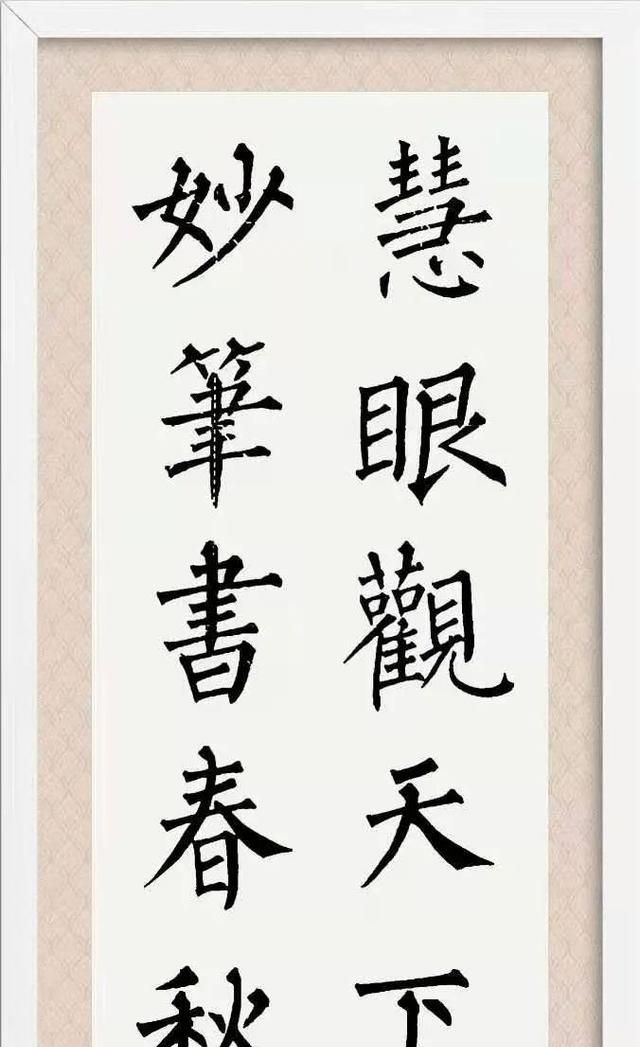 慧眼觀天下
妙筆書春秋